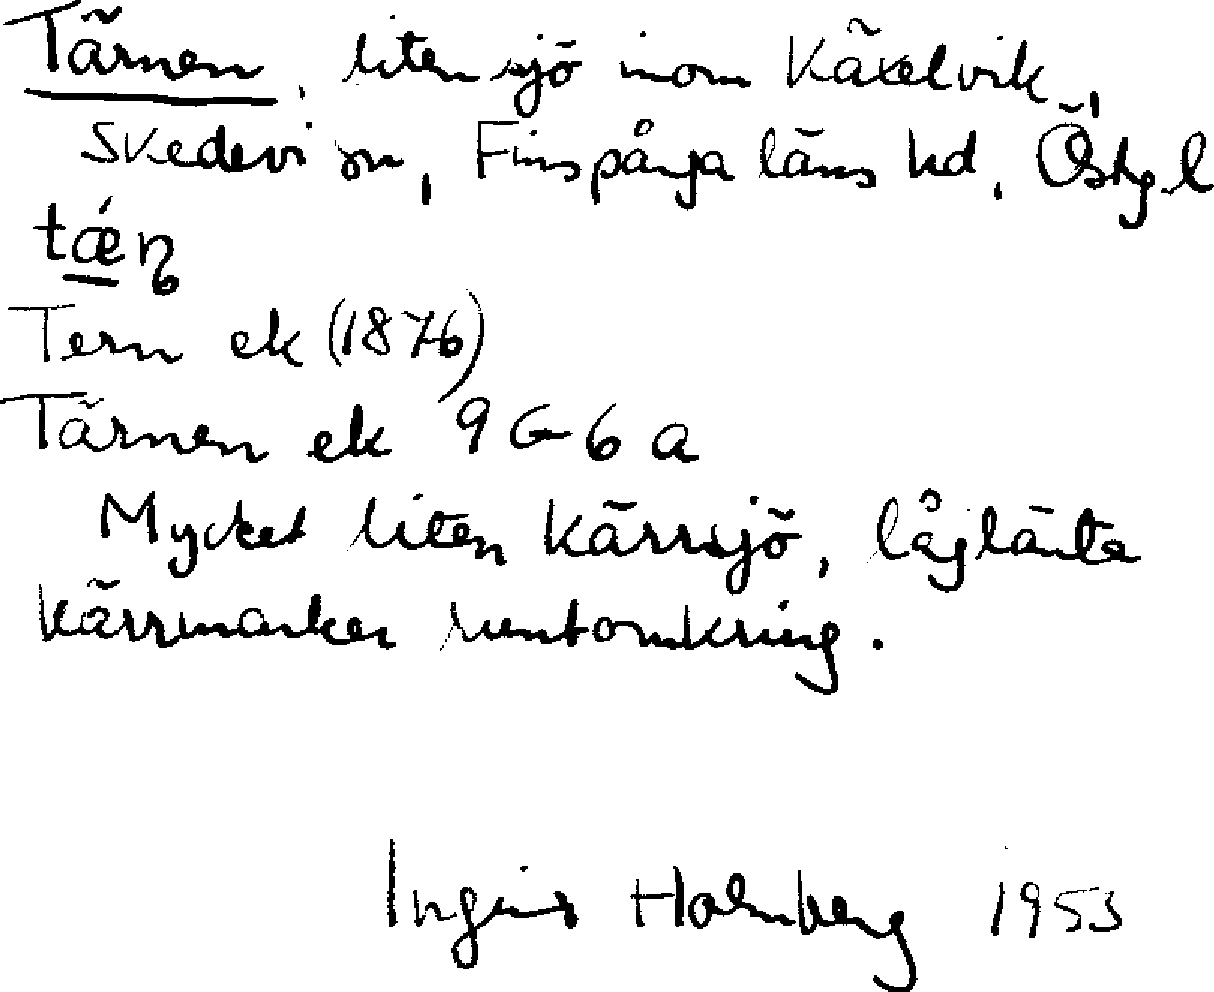 Tärnen, liten sjö inom Käxelvik,
Skedevi sn, Finspånga läns hd, Östgl
tǽn
Tern ek (1876)
Tärnen ek 9G6a
Mycket liten kärrsjö, låglänta
kärrmarker runtomkring.
Holmberg 1953